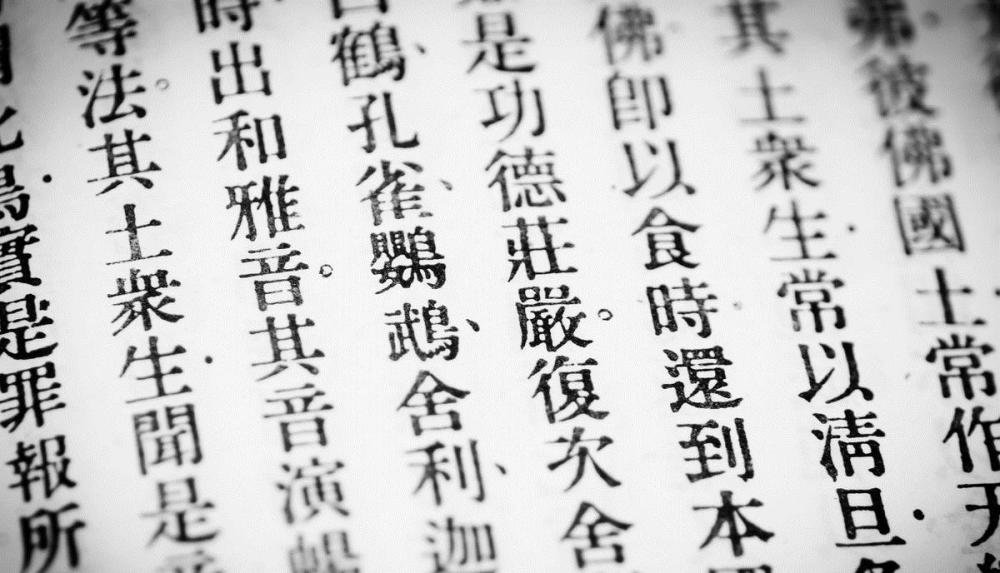 弗。彼佛國土常作天
其土衆生·常以清旦·各
佛即以食時還到本
是功德莊嚴。復次舍
白鶴、孔雀、鸚鵡、舍利、迦
時出和雅音。其音演暢
等法。其土衆生·聞是
此鳥實是罪報所